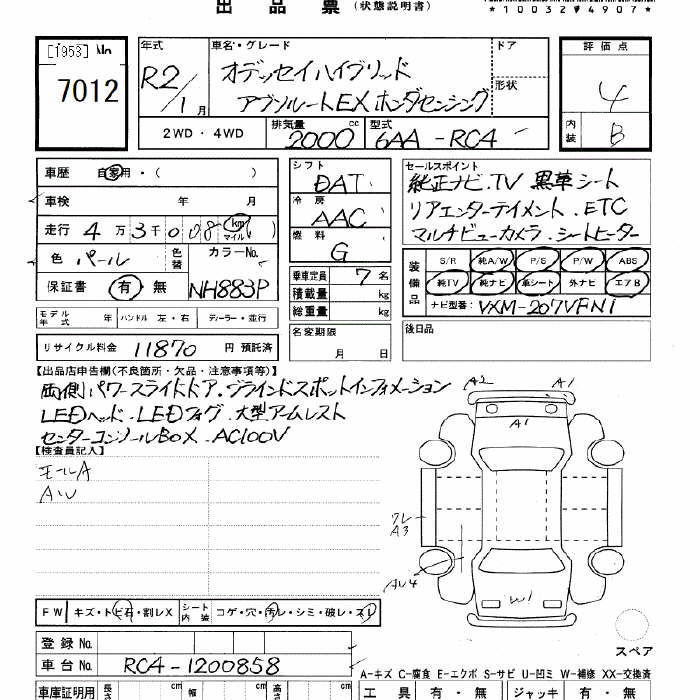 出品票(状態説明書)
*10032*4907*
[1953] No.
7012
年式
R2/1月
車名・グレード
オデッセイハイブリッド
アブソルートEX ホンダセンシング
ドア
形状
評価点
4
内装
B
2WD・4WD
排気量
2000 cc
型式
6AA-RC4
車歴 自家用・( )
車検 年 月
走行 4万3千0 08 km マイル
色 パール 色替
カラーNo.
NH883P
保証書 有 無
シフト
DAT
冷房
AAC
燃料
G
乗車定員 7名
積載量 kg
総重量 kg
名変期限
月 日
セールスポイント
純正ナビ.TV 黒革シート
リアエンターテイメント.ETC
マルチビューカメラ.シートヒーター
装備品
S/R 純A/W P/S P/W ABS
純TV 純ナビ 革シート 外ナビ エアB
ナビ型番: VXM-207VFNI
後日品
モデル年式 年 ハンドル 左・右 ディーラー・並行
リサイクル料金 11870 円 預託済
【出品店申告欄(不良箇所・欠品・注意事項等)】
両側パワースライドドア.ブラインドスポットインフォメーション
LEDヘッド.LEDフォグ.大型アームレスト
センターコンソールBOX.AC100V
【検査員記入】
モールA
AW
A2 A1
A1
ワレ
A3
AW4
W1
スペア
FW キズ・トビ石・割レX シート内装 コゲ・穴・汚レ・シミ・破レ・スレ
登録No.
車台No. RC4-1200858
A-キズ C-腐食 E-エクボ S-サビ U-凹ミ W-補修 XX-交換済
車庫証明用 長さ cm 幅 cm 高さ cm
工具 有・無 ジャッキ 有・無